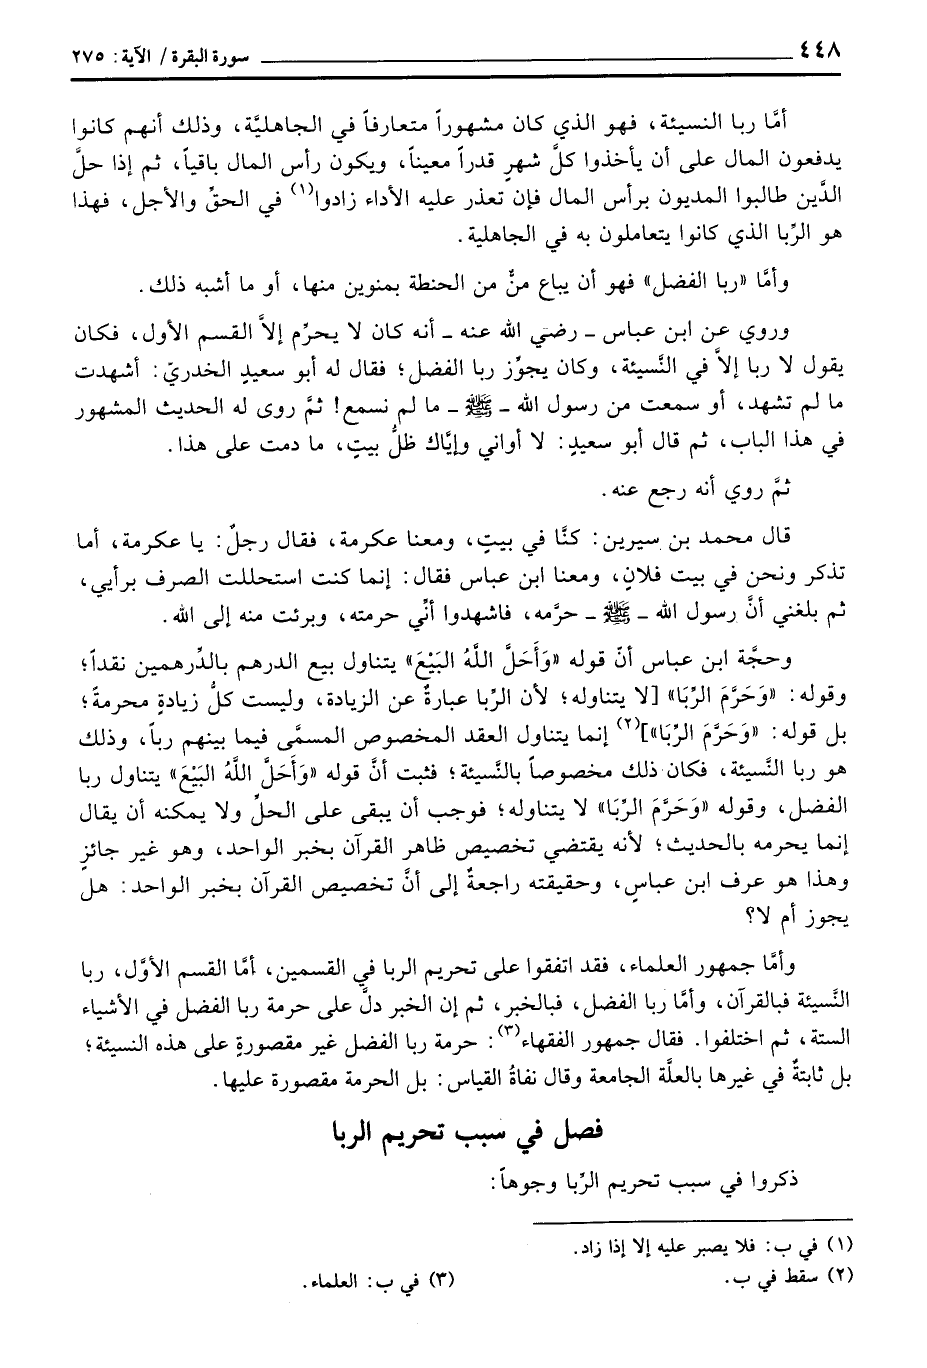 ٤٤٨ سورة البقرة / الآية: ٢٧٥
أمَّا ربا النسيئة، فهو الذي كان مشهوراً متعارفاً في الجاهليَّة، وذلك أنهم كانوا
يدفعون المال على أن يأخذوا كلَّ شهرٍ قدراً معيناً، ويكون رأس المال باقياً، ثم إذا حلَّ
الدَّين طالبوا المديون برأس المال فإن تعذر عليه الأداء زادوا(١) في الحقِّ والأجل، فهذا
هو الرِّبا الذي كانوا يتعاملون به في الجاهلية.
وأمَّا «ربا الفضل» فهو أن يباع منٌّ من الحنطة بمنوين منها، أو ما أشبه ذلك.
وروي عن ابن عباس ـ رضي الله عنه ـ أنه كان لا يحرِّم إلاَّ القسم الأول، فكان
يقول لا ربا إلاَّ في النَّسيئة، وكان يجوِّز ربا الفضل؛ فقال له أبو سعيدٍ الخدريّ: أشهدت
ما لم تشهد، أو سمعت من رسول الله ـ ﷺ ـ ما لم نسمع! ثمَّ روى له الحديث المشهور
في هذا الباب، ثم قال أبو سعيدٍ: لا أواني وإيَّاك ظلُّ بيتٍ، ما دمت على هذا.
ثمَّ روي أنه رجع عنه.
قال محمد بن سيرين: كنَّا في بيتٍ، ومعنا عكرمة، فقال رجلٌ: يا عكرمة، أما
تذكر ونحن في بيت فلانٍ، ومعنا ابن عباس فقال: إنما كنت استحللت الصرف برأيي،
ثم بلغني أنَّ رسول الله ـ ﷺ ـ حرَّمه، فاشهدوا أنِّي حرمته، وبرئت منه إلى الله.
وحجَّة ابن عباس أنّ قوله «وَأَحَلَّ اللَّهُ البَيْعَ» يتناول بيع الدرهم بالدِّرهمين نقداً؛
وقوله: «وَحَرَّمَ الرِّبَا» [لا يتناوله؛ لأن الرِّبا عبارةٌ عن الزيادة، وليست كلُّ زيادةٍ محرمةً؛
بل قوله: «وَحَرَّمَ الرِّبَا»](٢) إنما يتناول العقد المخصوص المسمَّى فيما بينهم رباً، وذلك
هو ربا النَّسيئة، فكان ذلك مخصوصاً بالنَّسيئة؛ فثبت أنَّ قوله «وَأَحَلَّ اللَّهُ البَيْعَ» يتناول ربا
الفضل، وقوله «وَحَرَّمَ الرِّبَا» لا يتناوله؛ فوجب أن يبقى على الحلِّ ولا يمكنه أن يقال
إنما يحرمه بالحديث؛ لأنه يقتضي تخصيص ظاهر القرآن بخبر الواحد، وهو غير جائزٍ
وهذا هو عرف ابن عباسٍ، وحقيقته راجعةٌ إلى أنَّ تخصيص القرآن بخبر الواحد: هل
يجوز أم لا؟
وأمَّا جمهور العلماء، فقد اتفقوا على تحريم الربا في القسمين، أمَّا القسم الأوَّل، ربا
النَّسيئة فبالقرآن، وأمَّا ربا الفضل، فبالخبر، ثم إن الخبر دلَّ على حرمة ربا الفضل في الأشياء
الستة، ثم اختلفوا. فقال جمهور الفقهاء(٣): حرمة ربا الفضل غير مقصورةٍ على هذه النسيئة؛
بل ثابتةٌ في غيرها بالعلَّة الجامعة وقال نفاةُ القياس: بل الحرمة مقصورة عليها.
فصل في سبب تحريم الربا
ذكروا في سبب تحريم الرِّبا وجوهاً:
(١) في ب: فلا يصبر عليه إلا إذا زاد.
(٢) سقط في ب. (٣) في ب: العلماء.